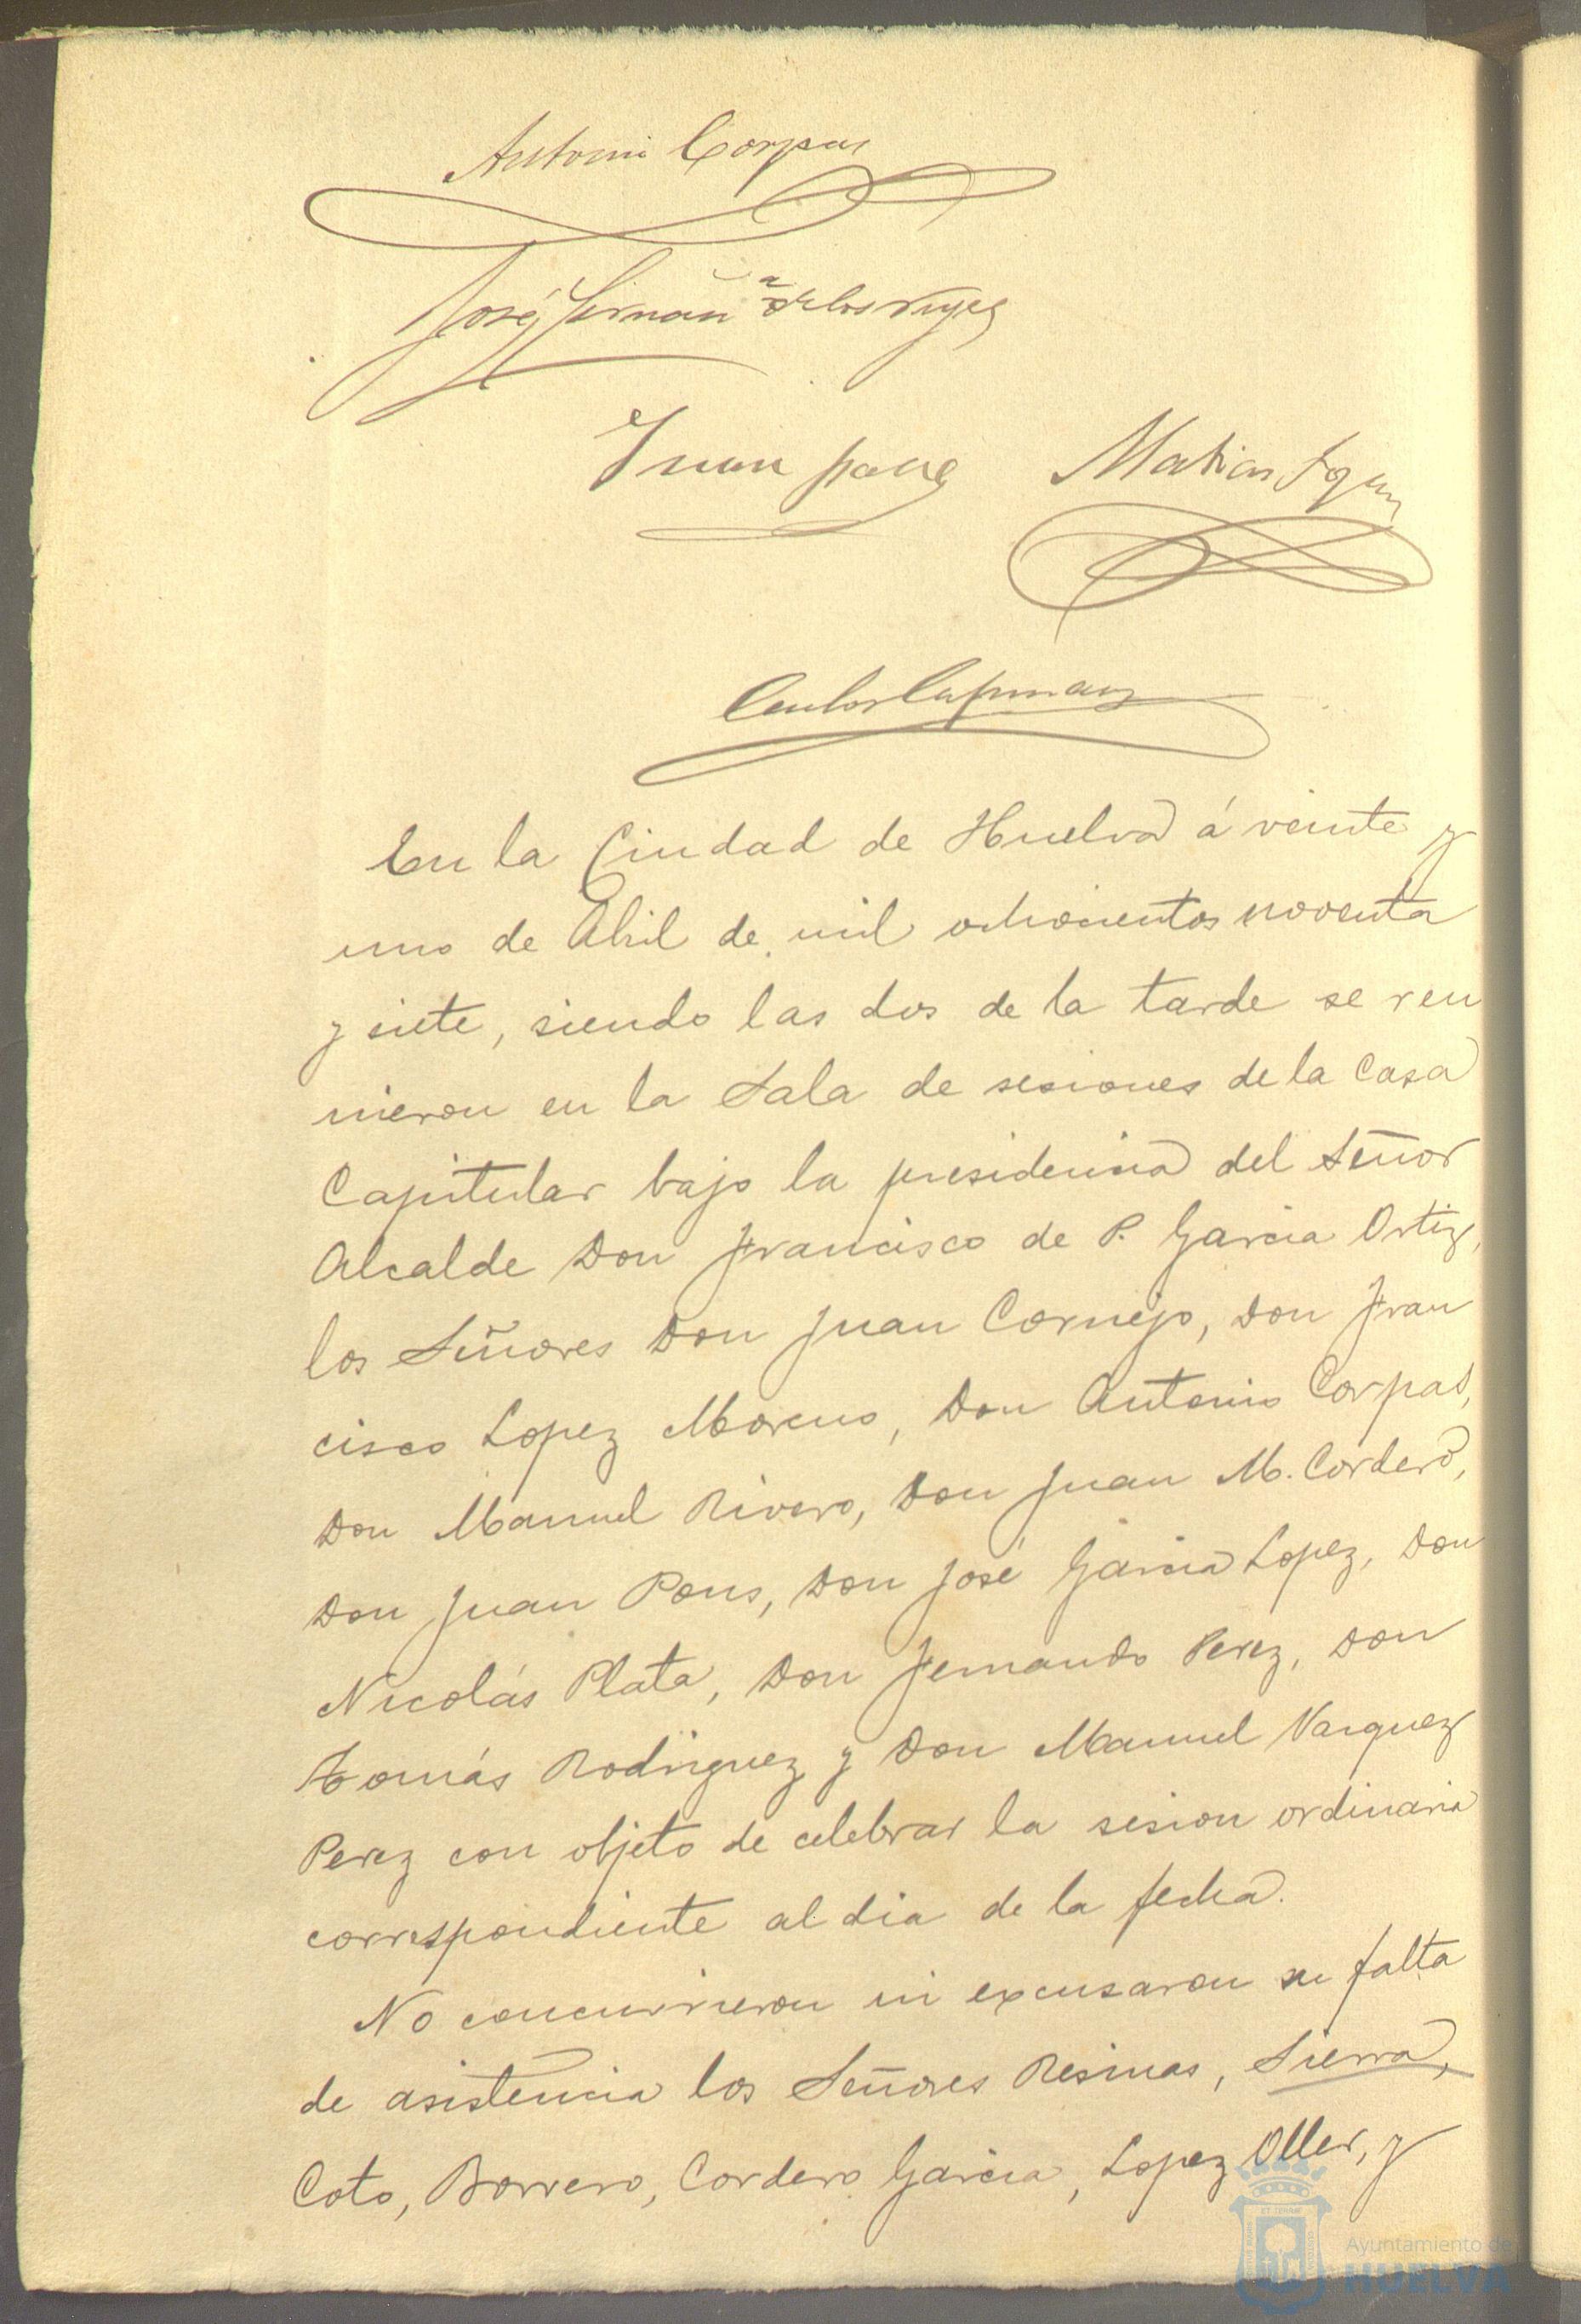 Antonio Corpas
José Hernán
Juan Pons Matias
Carlos Capmany
En la Ciudad de Huelva á veinte y
uno de Abril de mil ochocientos noventa
y siete, siendo las dos de la tarde se reu
nieron en la Sala de sesiones de la Casa
Capitular bajo la presidencia del Señor
Alcalde Don Francisco de P. Garcia Ortiz,
los Señores Don Juan Cornejo, Don Fran
cisco Lopez Moreno, Don Antonio Corpas,
Don Manuel Rivero, Don Juan M. Cordero,
Don Juan Pons, Don José Garcia Lopez, Don
Nicolás Plata, Don Fernando Perez, Don
Tomás Rodriguez y Don Manuel Vazquez
Perez con objeto de celebrar la sesion ordinaria
correspondiente al dia de la fecha.
No concurrieron ni excusaron su falta
de asistencia los Señores Resinas, Sierra,
Coto, Borrero, Cordero Garcia, Lopez Oller, y
Ayuntamiento de
HUELVA